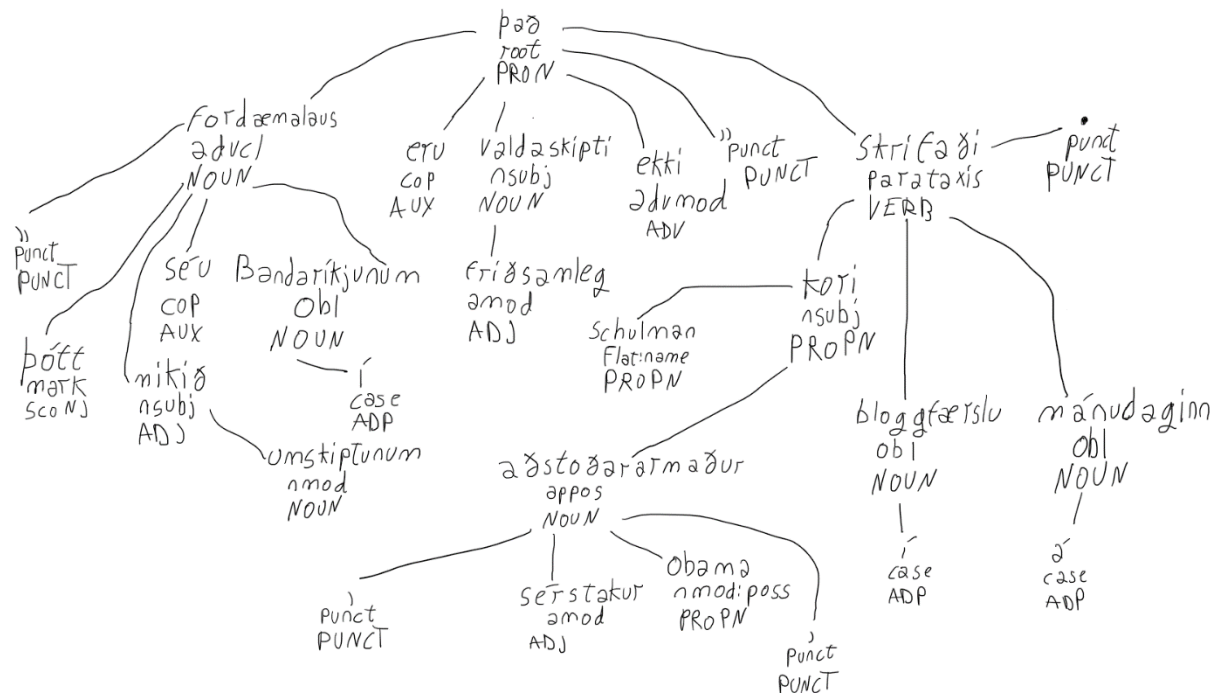 það
root
PRON
fordæmalaus
advcl
NOUN
eru
COP
AUX
valdaskipti
nsubj
NOUN
ekki
advmod
ADV
”
punct
PUNCT
skrifaði
parataxis
VERB
.
punct
PUNCT
”
punct
PUNCT
þótt
mark
SCONJ
séu
COP
AUX
mikið
nsubj
ADJ
umskiptunum
nmod
NOUN
Bandaríkjunum
obl
NOUN
í
case
ADP
friðsamleg
amod
ADJ
kori
nsubj
PROPN
schulman
flat:name
PROPN
aðstoðararmaður
appos
NOUN
,
punct
PUNCT
sérstakur
amod
ADJ
Obama
nmod:poss
PROPN
,
punct
PUNCT
bloggfærslu
obl
NOUN
í
case
ADP
mánudaginn
obl
NOUN
á
case
ADP